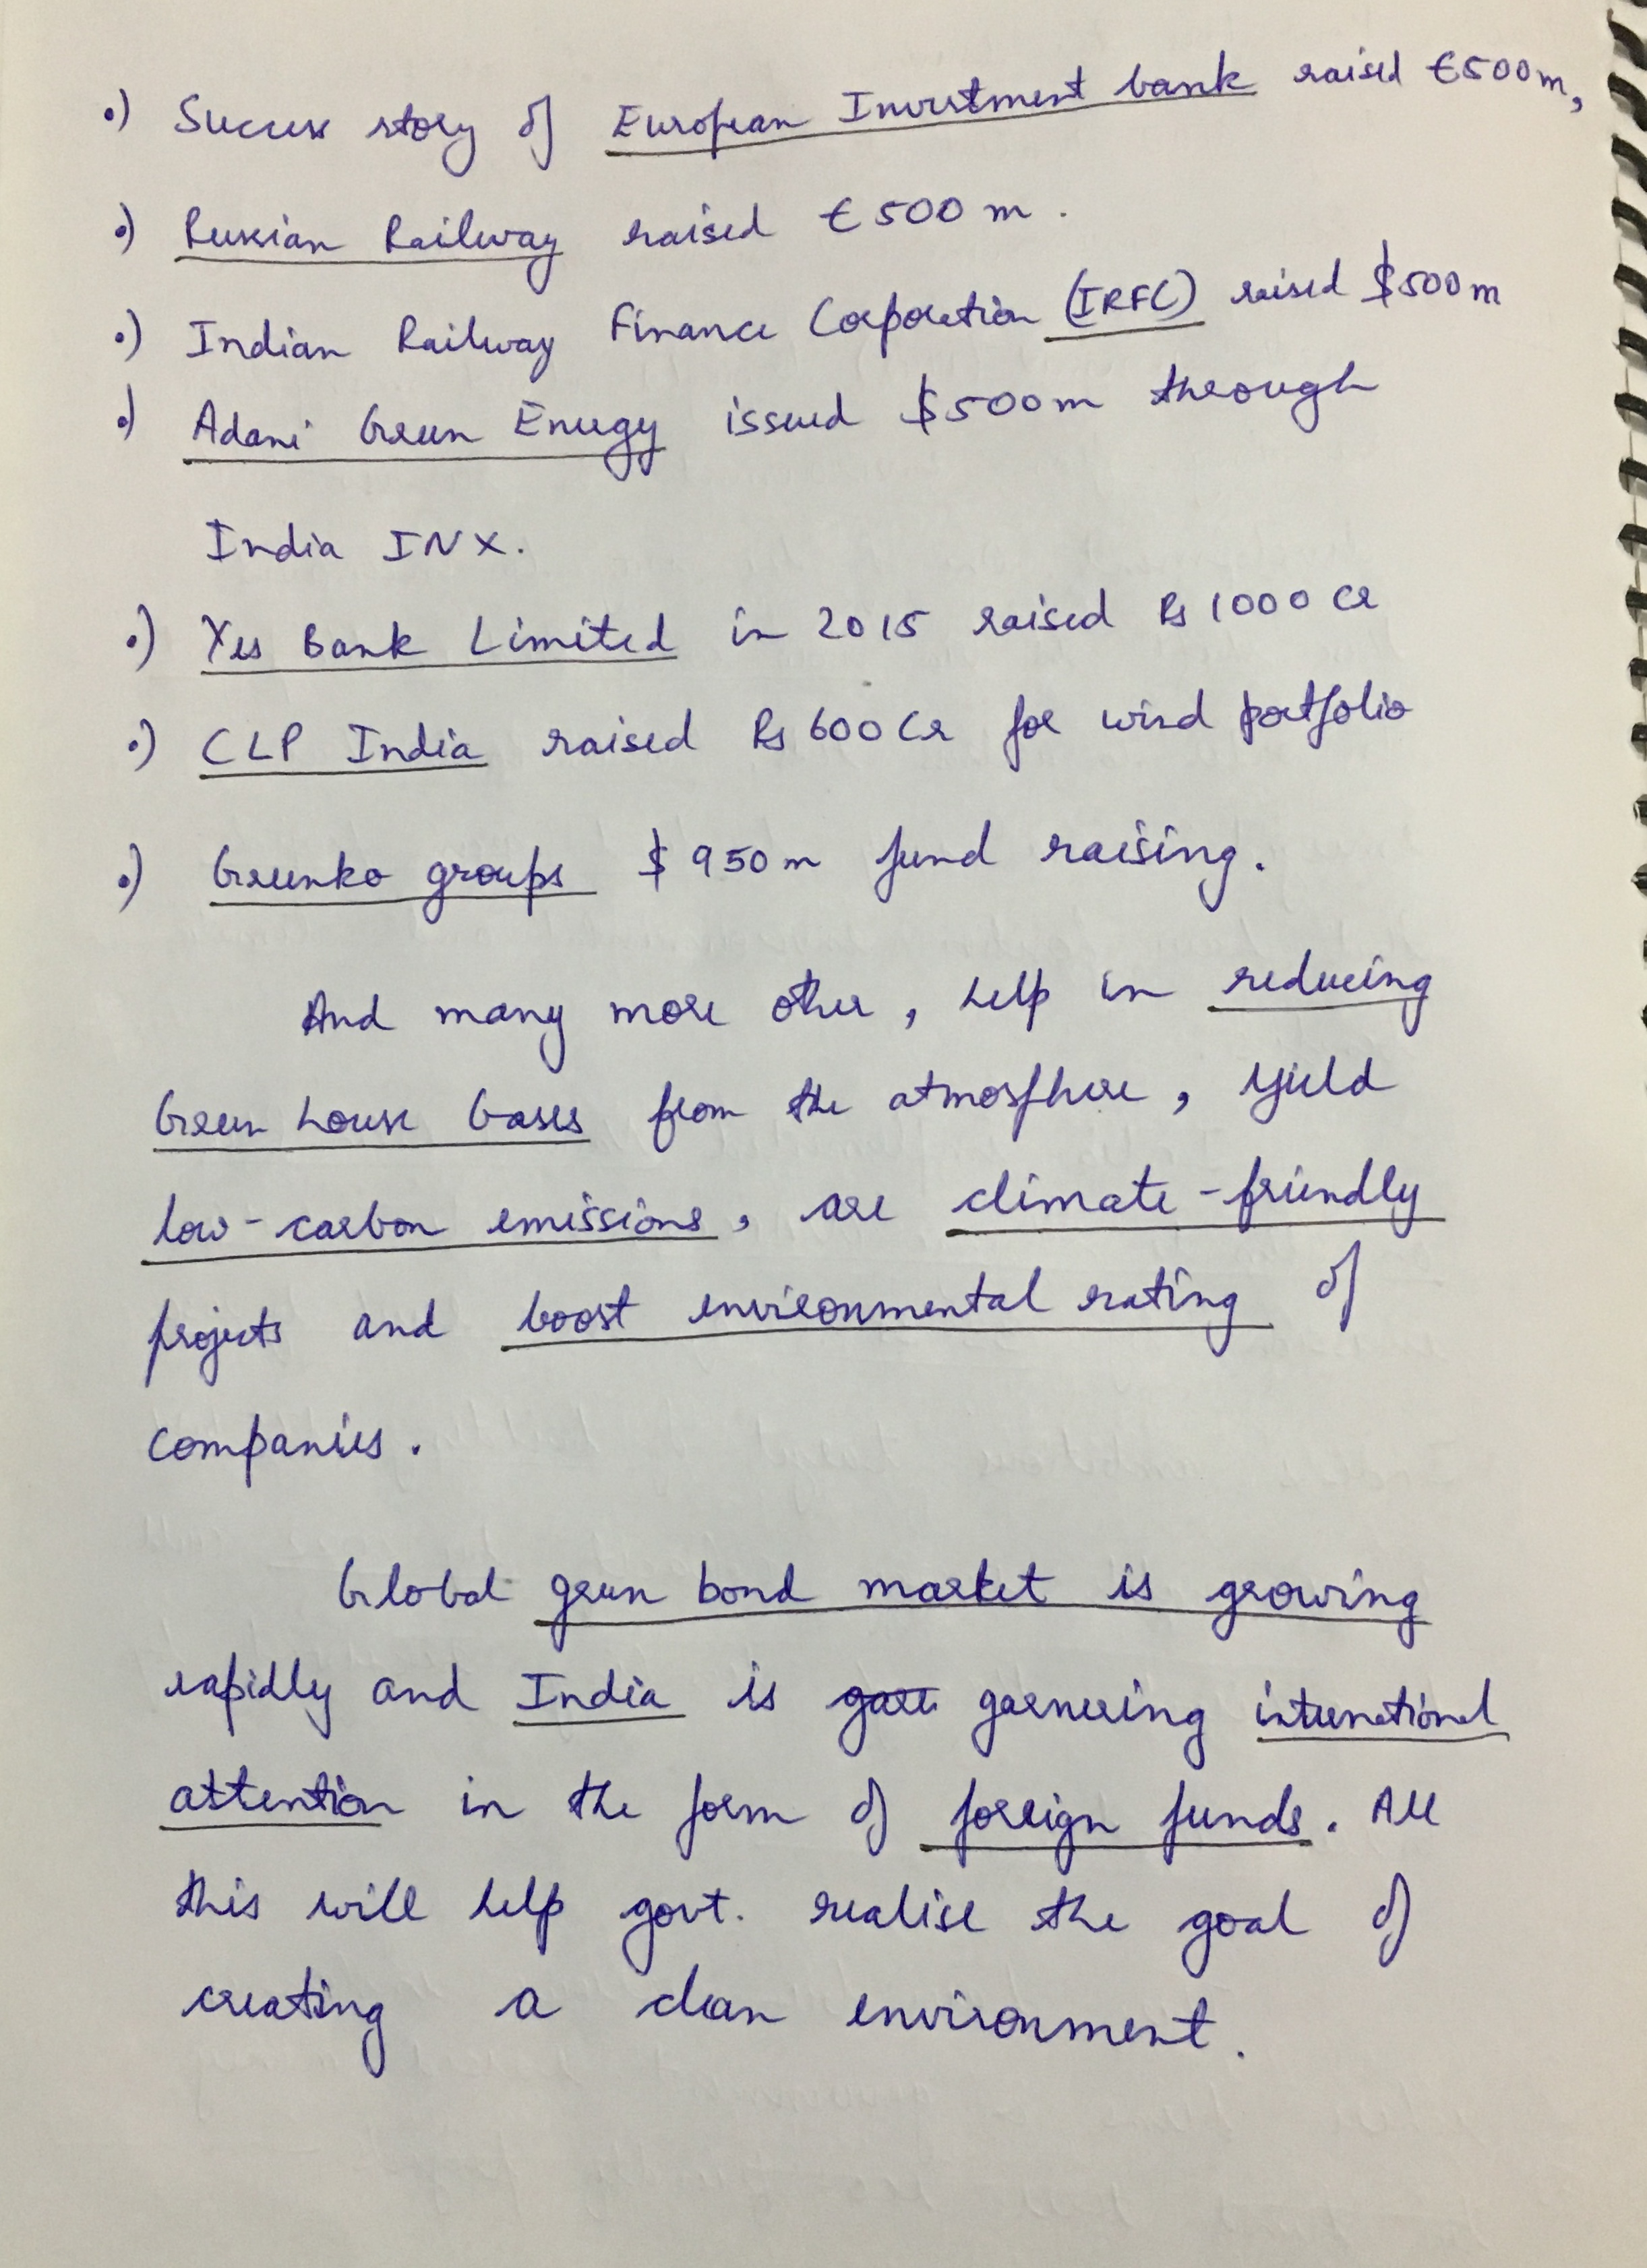 •) Success story of European Investment bank raised €500m,
•) Russian Railway raised €500m.
•) Indian Railway Finance Corporation (IRFC) raised $500m
•) Adani Green Energy issued $500m through
India INX.
•) Yes Bank Limited in 2015 raised Rs 1000 Cr
•) CLP India raised Rs 600 Cr for wind portfolio
•) Greenko groups $950m fund raising.
And many more other, help in reducing
Green house Gases from the atmosphere, yield
low-carbon emissions, are climate-friendly
projects and boost environmental rating of
companies.
Global green bond market is growing
rapidly and India is gare garnering international
attention in the form of foreign funds. All
this will help govt. realise the goal of
creating a clean environment.